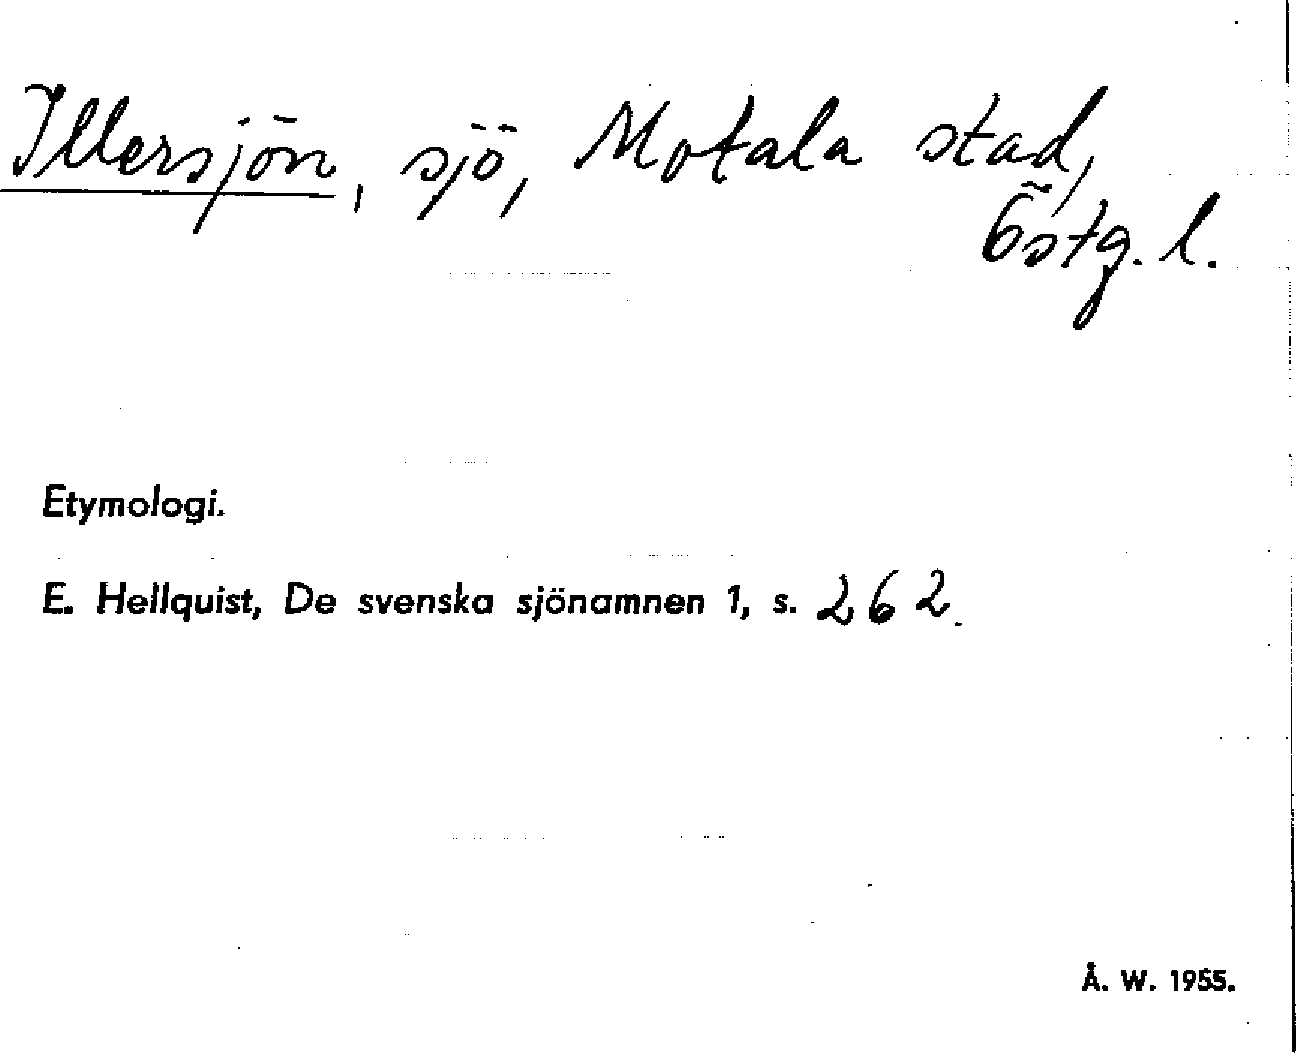 Illersjön, sjö, Motala stad,
Östg. l.
Etymologi.
E. Hellquist, De svenska sjönamnen 1, s. 262.
Å. W. 1955.